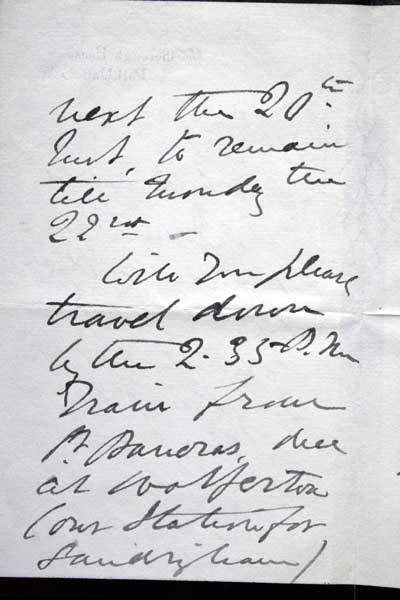 next the 20th
Inst, to remain
till Monday the
22nd –
Will you please
travel down
by the 2.35 P.M
Train from
St Pancras, due
at Wolferton
(our Station for
Sandringham)